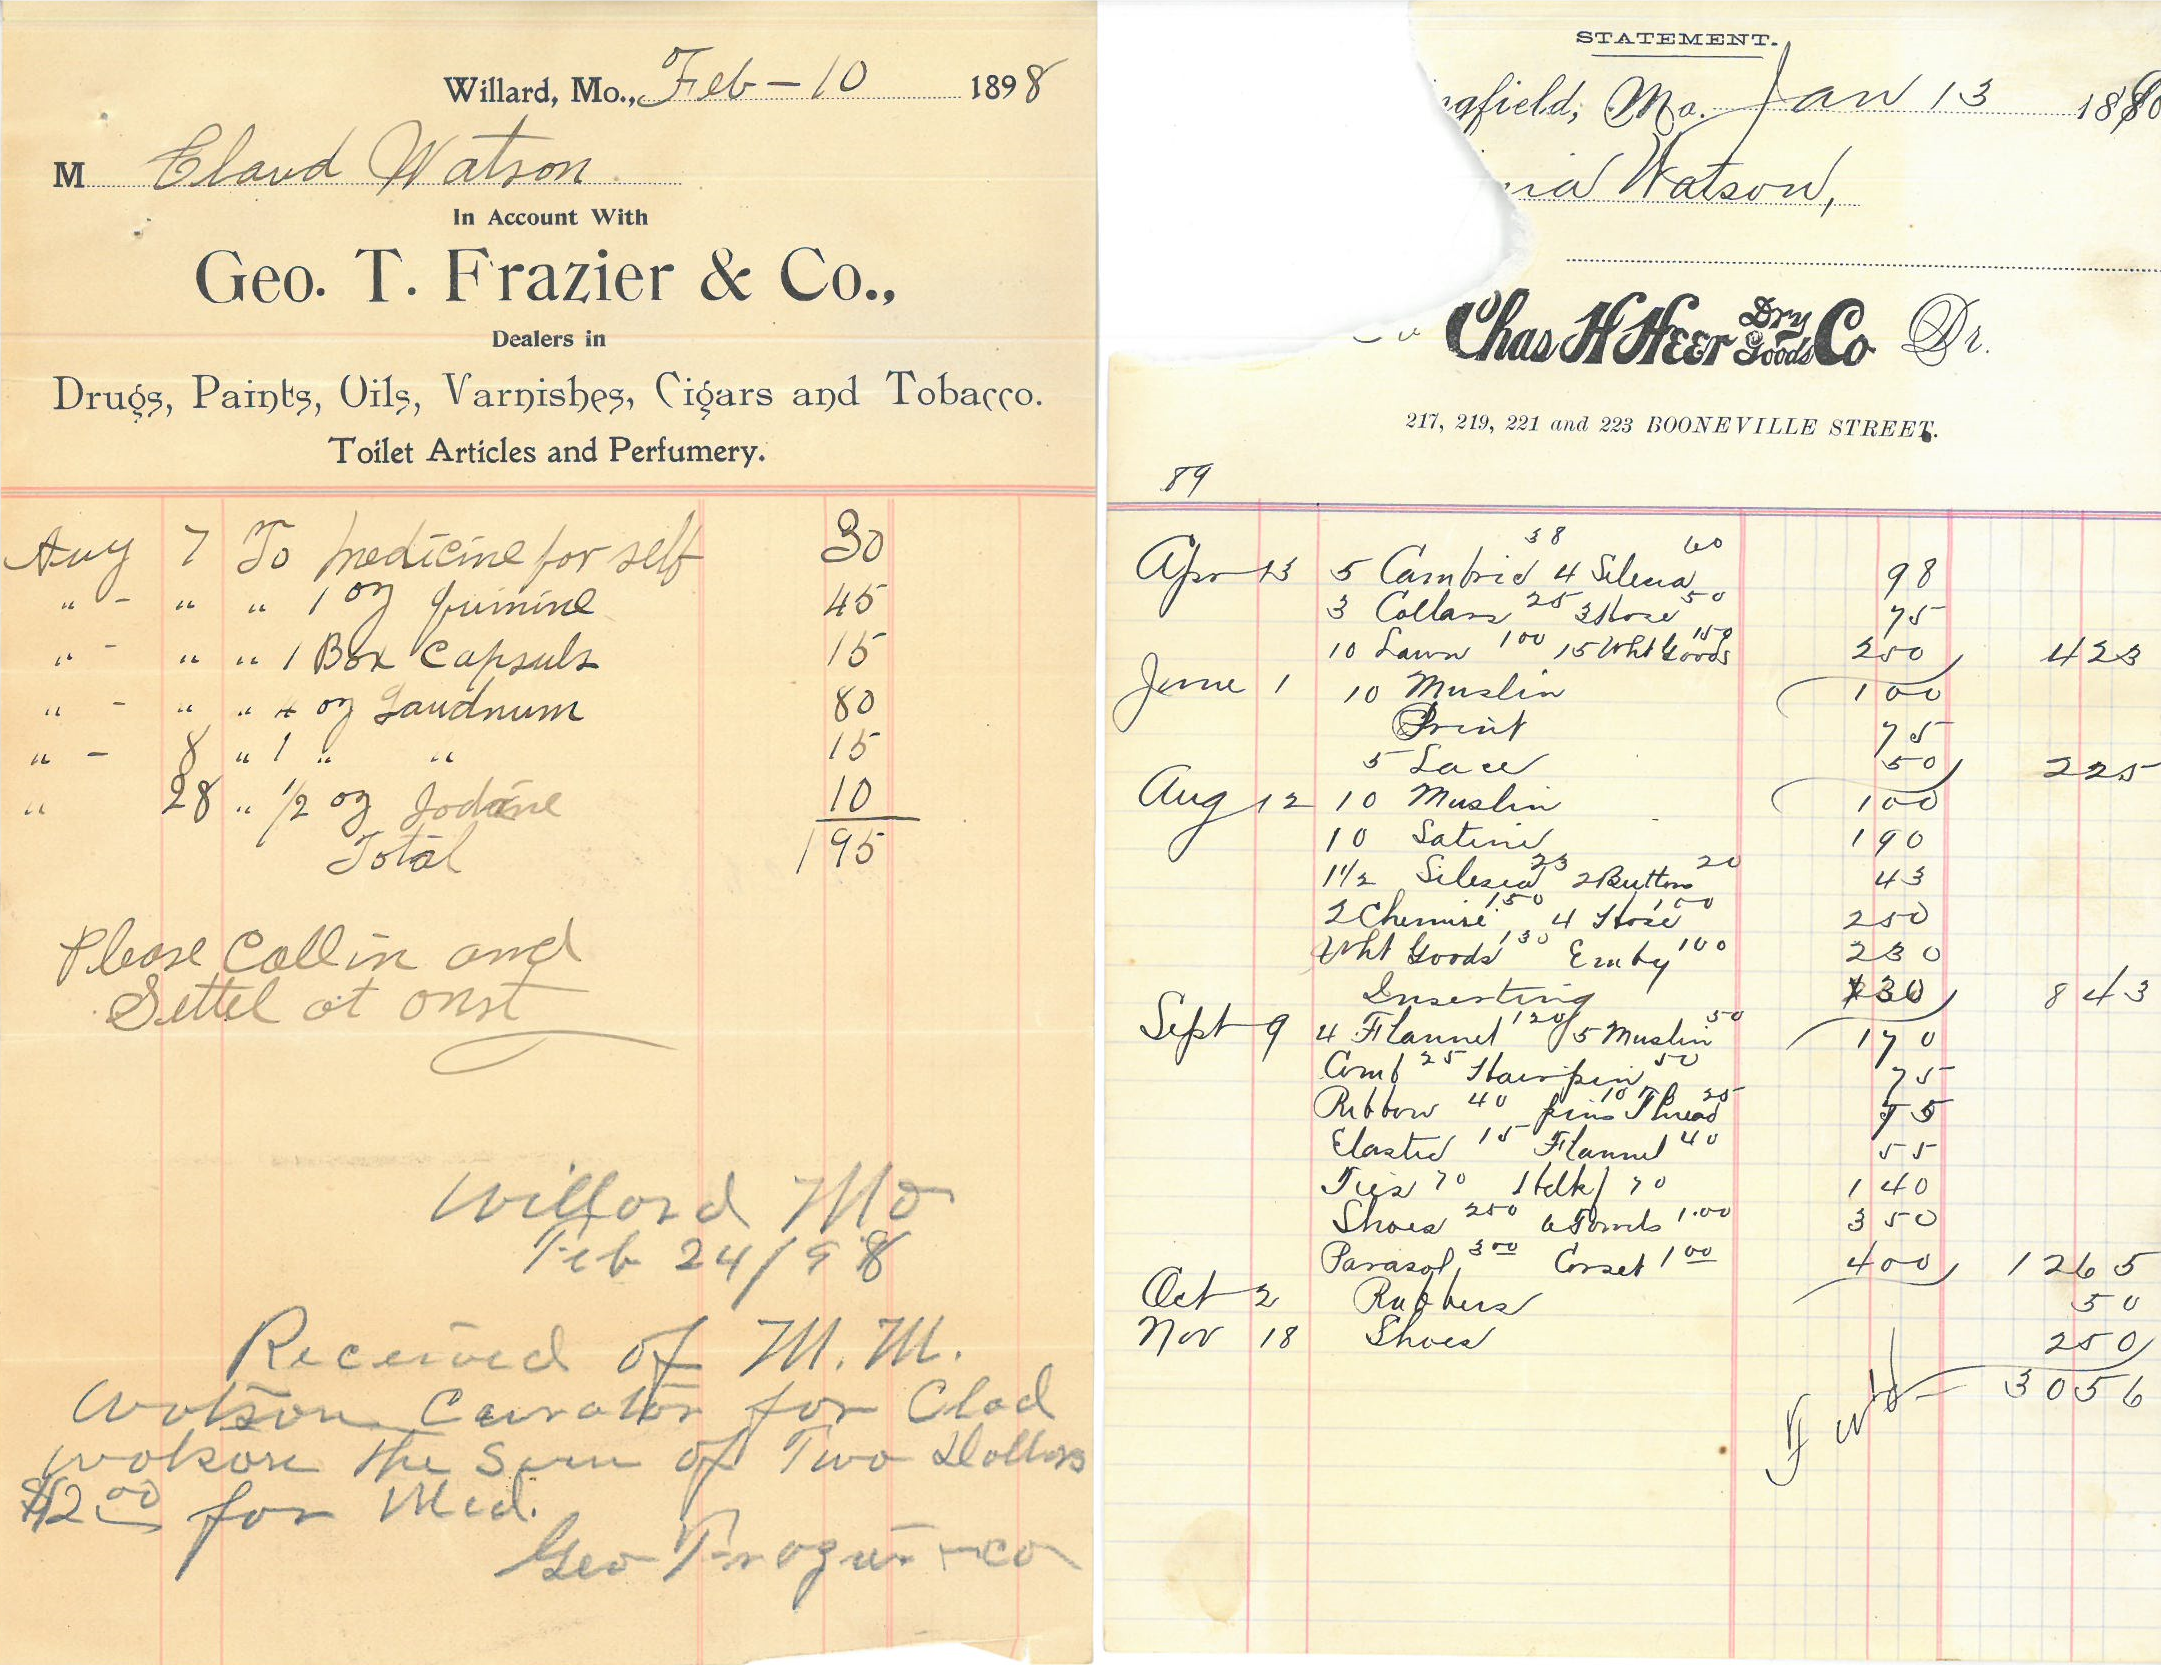 Willard, Mo., Feb - 10 1898
M Claud Watson
In Account With
Geo. T. Frazier & Co.,
Dealers in
Drugs, Paints, Oils, Varnishes, Cigars and Tobacco.
Toilet Articles and Perfumery.
Aug 7 To medicine for self 30
" - " " 1 oz quinine 45
" - " " 1 Box Capsuls 15
" - " " 4 oz Laudnum 80
" - 8 " 1 " " 15
" 28 " 1/2 oz Jodine 10
Total 195
Please Call in and
Settel at onst
Willard Mo
Feb 24/98
Received of M. M.
Watson Curator for Clad
Watson the Sum of Two Dollars
$2 00 for Med.
Geo Frazier + co
STATEMENT.
ngfield, Mo. Jan 13 1890
nia Watson,
Chas H Heer Dry Goods Co Dr.
217, 219, 221 and 223 BOONEVILLE STREET.
89
Apr 13 5 Cambric 38 4 Silecia 60 98
3 Collars 25 3 Hose 50 75
10 Lawn 100 15 Wht Goods 150 250 423
June 1 10 Muslin 100
Print 75
5 Lace 50 225
Aug 12 10 Muslin 100
10 Satine 190
1 1/2 Silesia 23 2 Buttons 20 43
2 Chemise 150 4 Hose 100 250
Wht Goods 130 Emby 100 230
Inserting 30 843
Sept 9 4 Flannel 120 5 Muslin 50 170
Comb 25 Hairpin 50 75
Ribbon 40 pins 10 Thread 25 75
Elastic 15 Flannel 40 55
Ties 70 Hdkf 70 140
Shoes 250 6 Towels 1.00 350
Parasol 300 Corset 100 400 1265
Oct 2 Rubbers 50
Nov 18 Shoes 250
Fwd - 3056